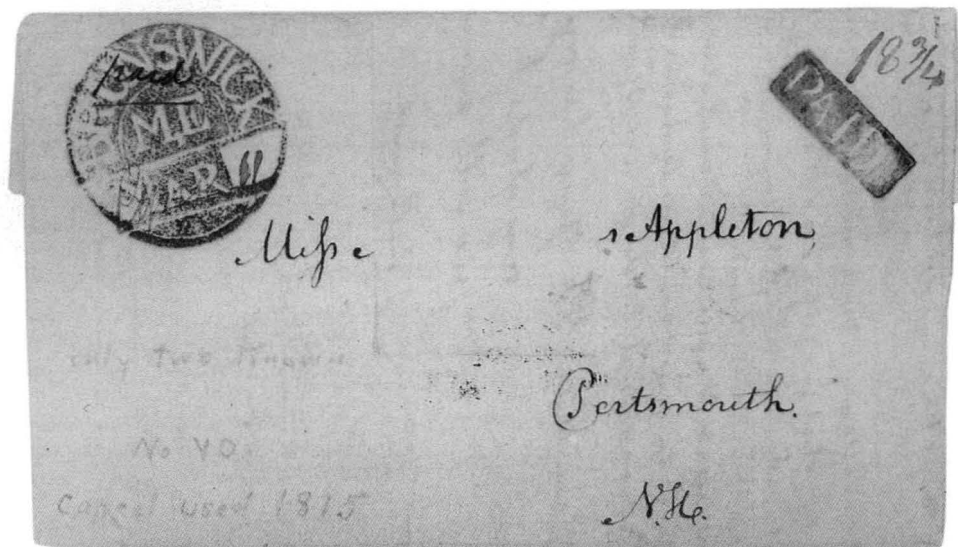 BRUNSWICK
paid
ME
MAR 11
PAID
18 3/4
Miss Appleton,
Portsmouth.
N.H.
only two known
No YD
Cancel used 1815